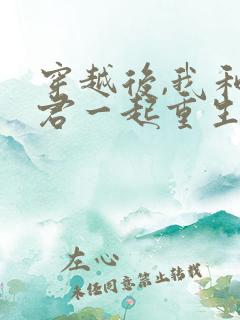 穿越後,我和
君一起重生
左心
未经同意禁止转载